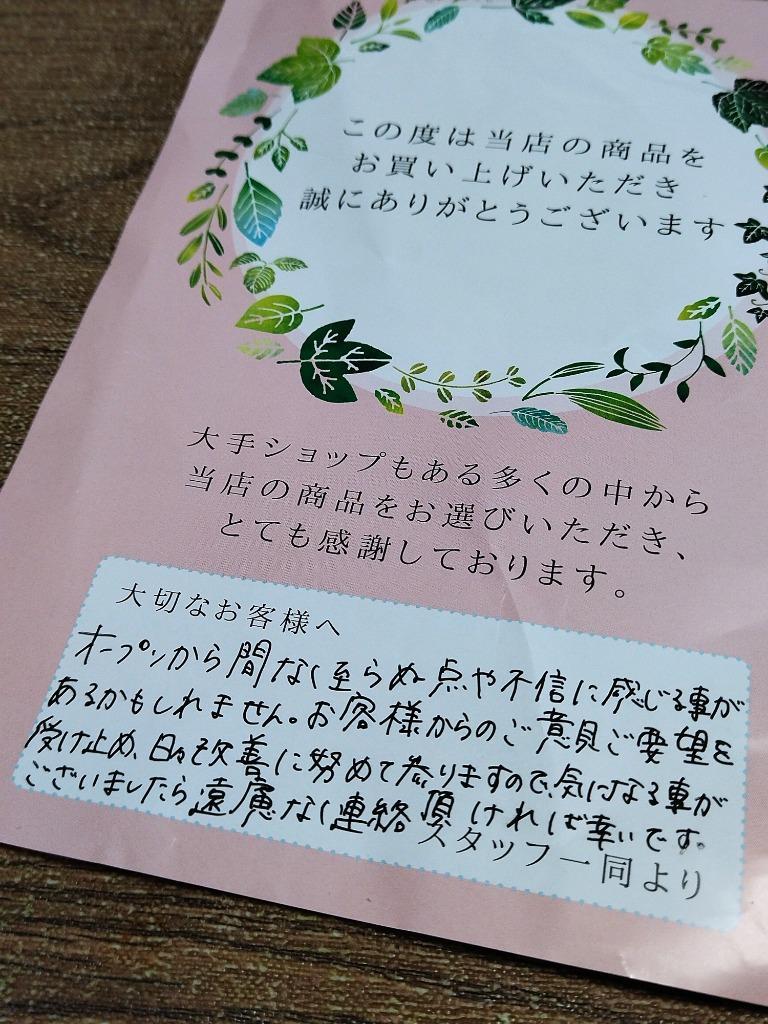 この度は当店の商品を
お買い上げいただき
誠にありがとうございます
大手ショップもある多くの中から
当店の商品をお選びいただき、
とても感謝しております。
大切なお客様へ
オープンから間なく至らぬ点や不信に感じる事が
あるかもしれません。お客様からのご意見ご要望を
受け止め、日々改善に努めて参りますので、気になる事が
ございましたら遠慮なく連絡頂ければ幸いです。
スタッフ一同より